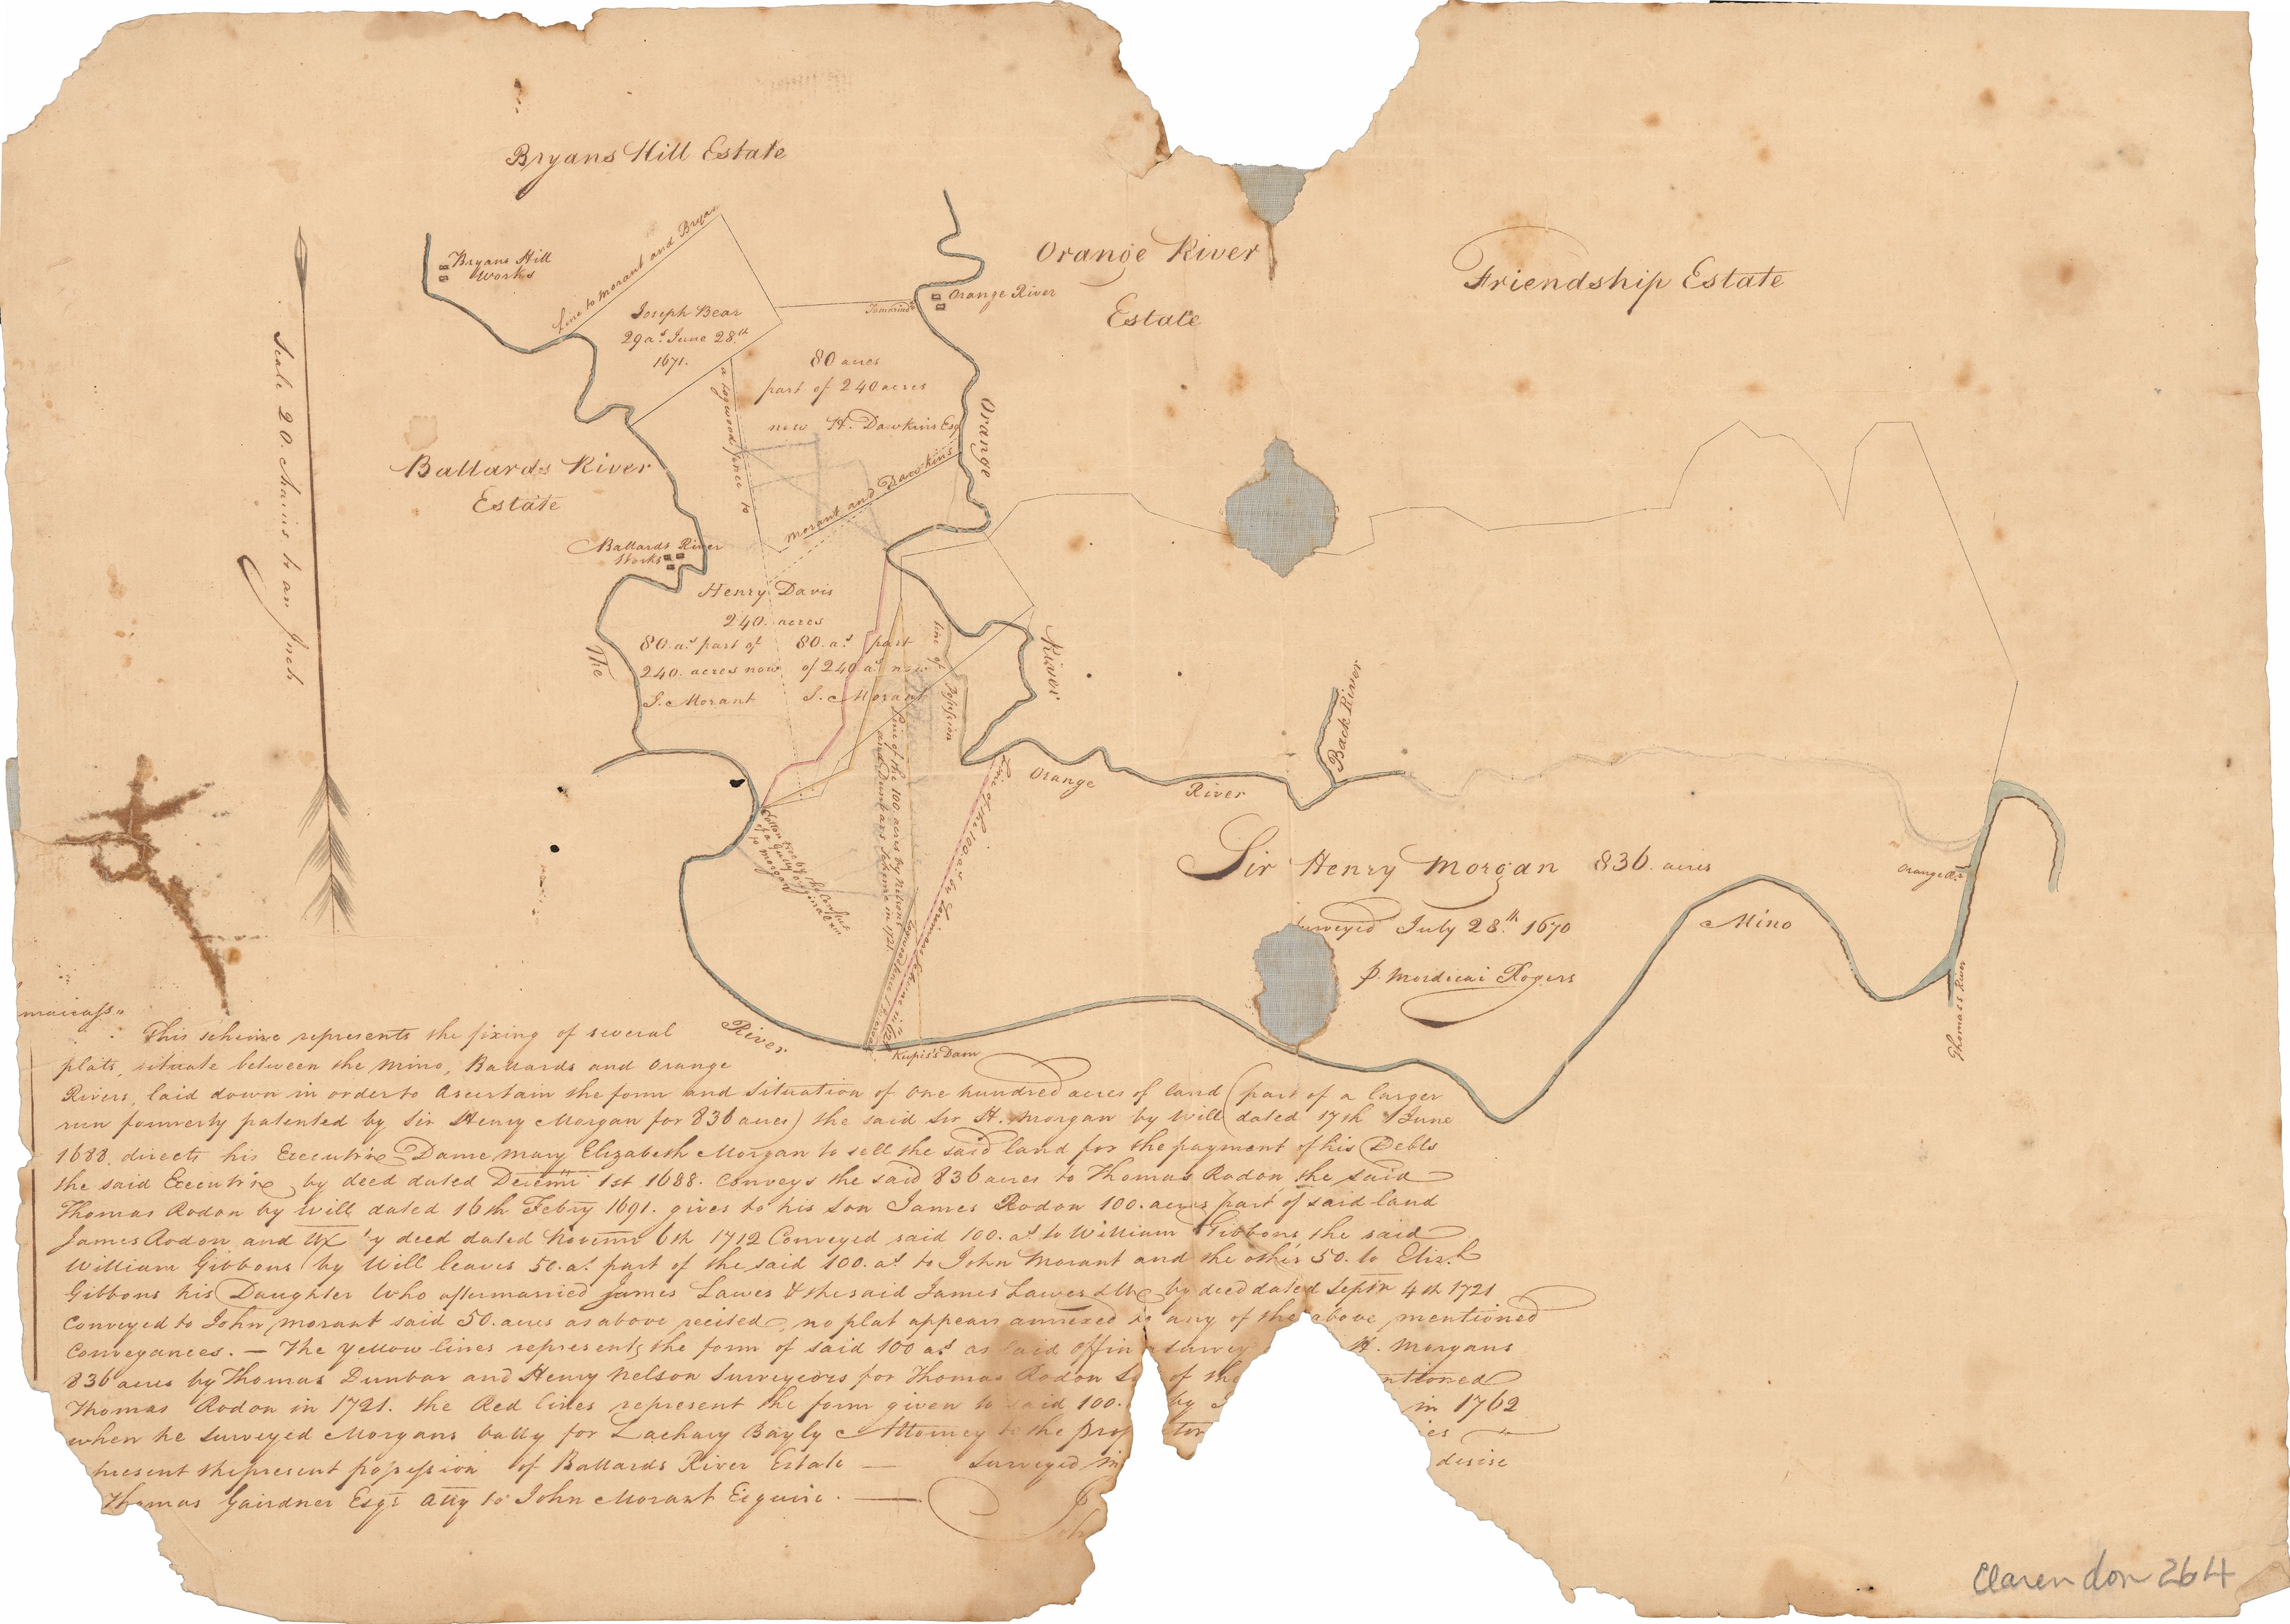 Bryans Hill Estate
Bryans Hill
Works
Line to Morant and Bryan
Orange River
Estate
Orange River
Friendship Estate
Joseph Bear
29 a.s June 28.th
1671.
80 acres
part of 240 acres
now H. Dawkins Esq
a logwood fence to
Morant and Dawkins
Orange
Scale 20. Chains to an Inch
Ballards River
Estate
Ballards River
Works
Henry Davis
240. acres
80. a.s part of
240. acres now
J. Morant
80. a.s part
of 240 a.s now
J. Morant
The
Line of Possession
River
Back River
Orange River
Line of the 100 acres by Nelson
and Dunbars Scheme in 1721
Line of the 100 a.s by
Sir Henry Morgan 836. acres
Surveyed July 28.th 1670
p. Mordicai Rogers
Mino
Orange R.
Thomas River
River
Kupis's Dam
maica ss"
This scheme represents the fixing of several
plats, situate between the Mino, Ballards and Orange
Rivers, laid down in order to Ascertain the form and Situation of One hundred acres of land (part of a larger
run formerly patented by Sir Henry Morgan for 836 acres) the said Sir H. Morgan by Will dated 17th June
1688. directs his Executrix Dame Mary Elizabeth Morgan to sell the said land for the payment of his Debts
the said Executrix by deed dated Decemr 1st 1688. Conveys the said 836 acres to Thomas Rodon the said
Thomas Rodon by will dated 16th Febry 1691. gives to his son James Rodon 100. acres part of said land
James Rodon and Ux by deed dated Novemr 6th 1712 Conveyed said 100. a.s to William Gibbons the said
William Gibbons by Will leaves 50. a.s part of the said 100. a.s to John Morant and the other 50. to Eliz.h
Gibbons his Daughter Who aftermarried James Lawes & the said James Lawes & Ux by deed dated Septr 4th 1721
Conveyed to John Morant said 50. acres as above recited, no plat appears annexed to any of the above mentioned
Conveyances. — The yellow lines represents the form of said 100 a.s as laid off in survey H. Morgans
836 acres by Thomas Dunbar and Henry Nelson Surveyors for Thomas Rodon of the
Thomas Rodon in 1721. the Red lines represent the form given to said 100. by in 1762
when he surveyed Morgans Vally for Zachary Bayly Attorney to the
present the present possession of Ballards River Estate — Surveyed desire
Thomas Gairdner Esqr. Atty to John Morant Esquire. —
Clarendon 264